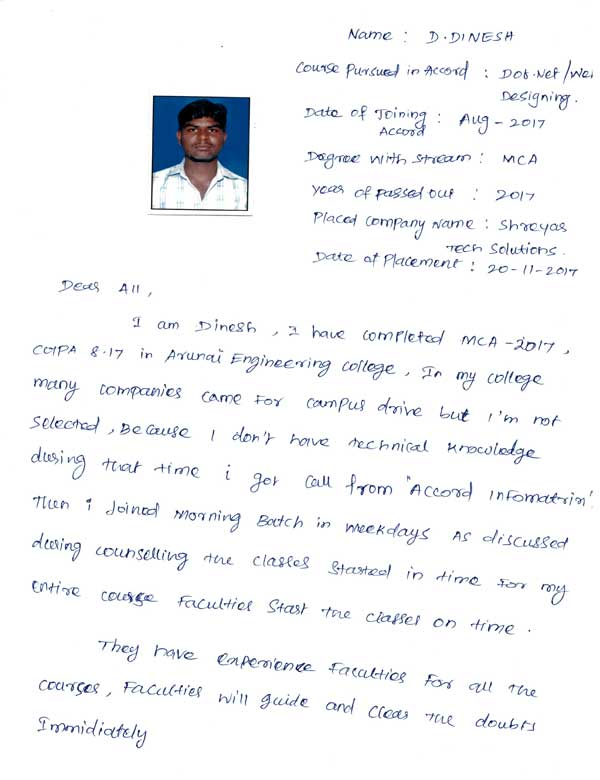 Name : D.DINESH
Course Pursued in Accord : Dot.Net/Web
Designing.
Date of Joining : Aug-2017
Accord
Degree with stream : MCA
year of passed out : 2017
Placed company Name : Shreyas
Tech Solutions.
Date of Placement : 20-11-2017
Dear All,
I am Dinesh, I have completed MCA-2017,
CGPA 8.17 in Arunai Engineering college, In my college
many companies came for campus drive but I'm not
selected, Because I don't have technical knowledge
during that time i got call from "Accord Infomatrix"
Then i Joined Morning Batch in weekdays As discussed
during counselling the classes started in time for my
entire course Faculties Start the classes on time.
They have experience Faculties for all the
courses, Faculties will guide and clear the doubts
Immidiately